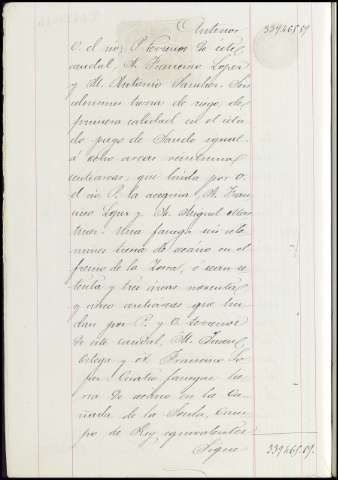 Antonio 339265.59.
O. el rio, P. terrenos de este
caudal, M. Francisco Lopez
y N. Antonio Sanchez. Seis
celemines tierra de riego de
primera calidad en el cita
do pago de Sando igual
á ocho areas veintiuna
centiareas, que linda por O.
el rio P. la acequia, M. Fran
cisco Lopez y N. Miguel
Una fanega seis cele
mines tierra de secano en el
de la Torre, ó sean se
tenta y tres áreas noventa
y cinco centiareas que lin
dan por P. y O. terrenos
de este caudal, M. Juan
Ortega y N. Francisco Lo
pez. Cuatro fanegas tier
ra de secano en la Ca
ñada de la Cam
po de Rey equivalentes
Sigue 339265.59.